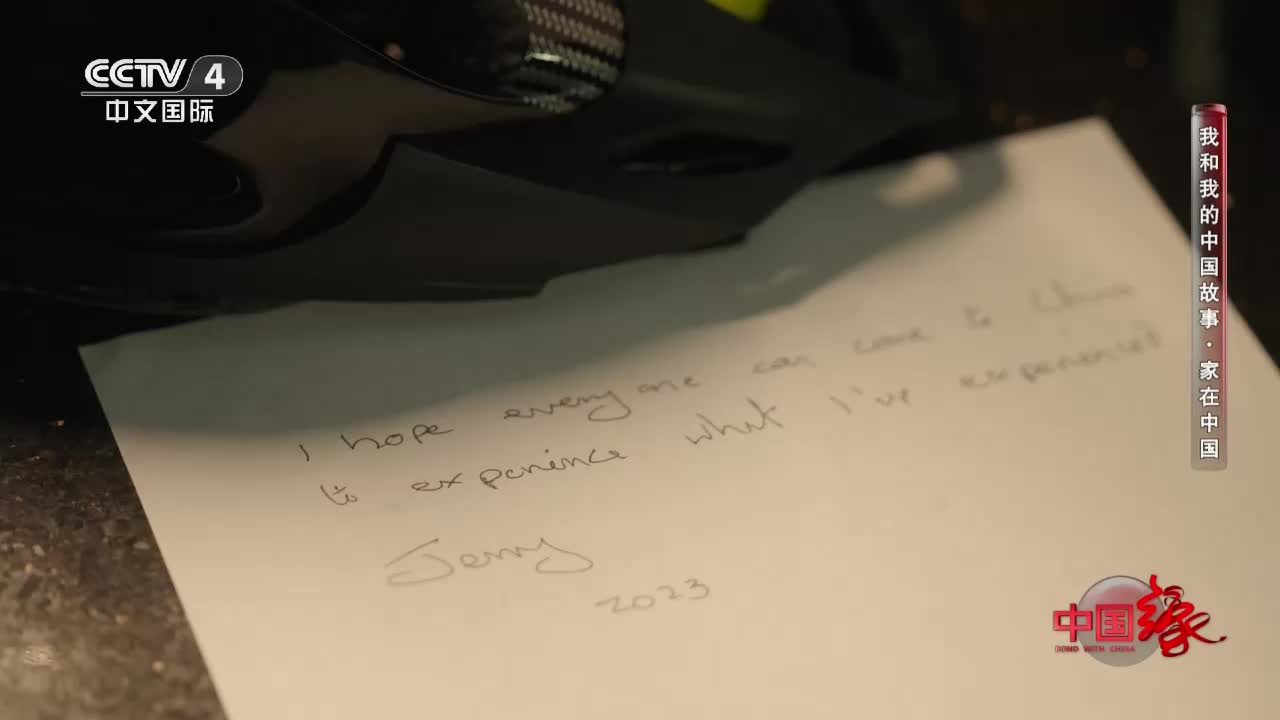 CCTV 4
中文国际
我和我的中国故事·家在中国
I hope everyone can come to China
to experience what I've experienced
Jerry
2023
中国缘
BOND WITH CHINA